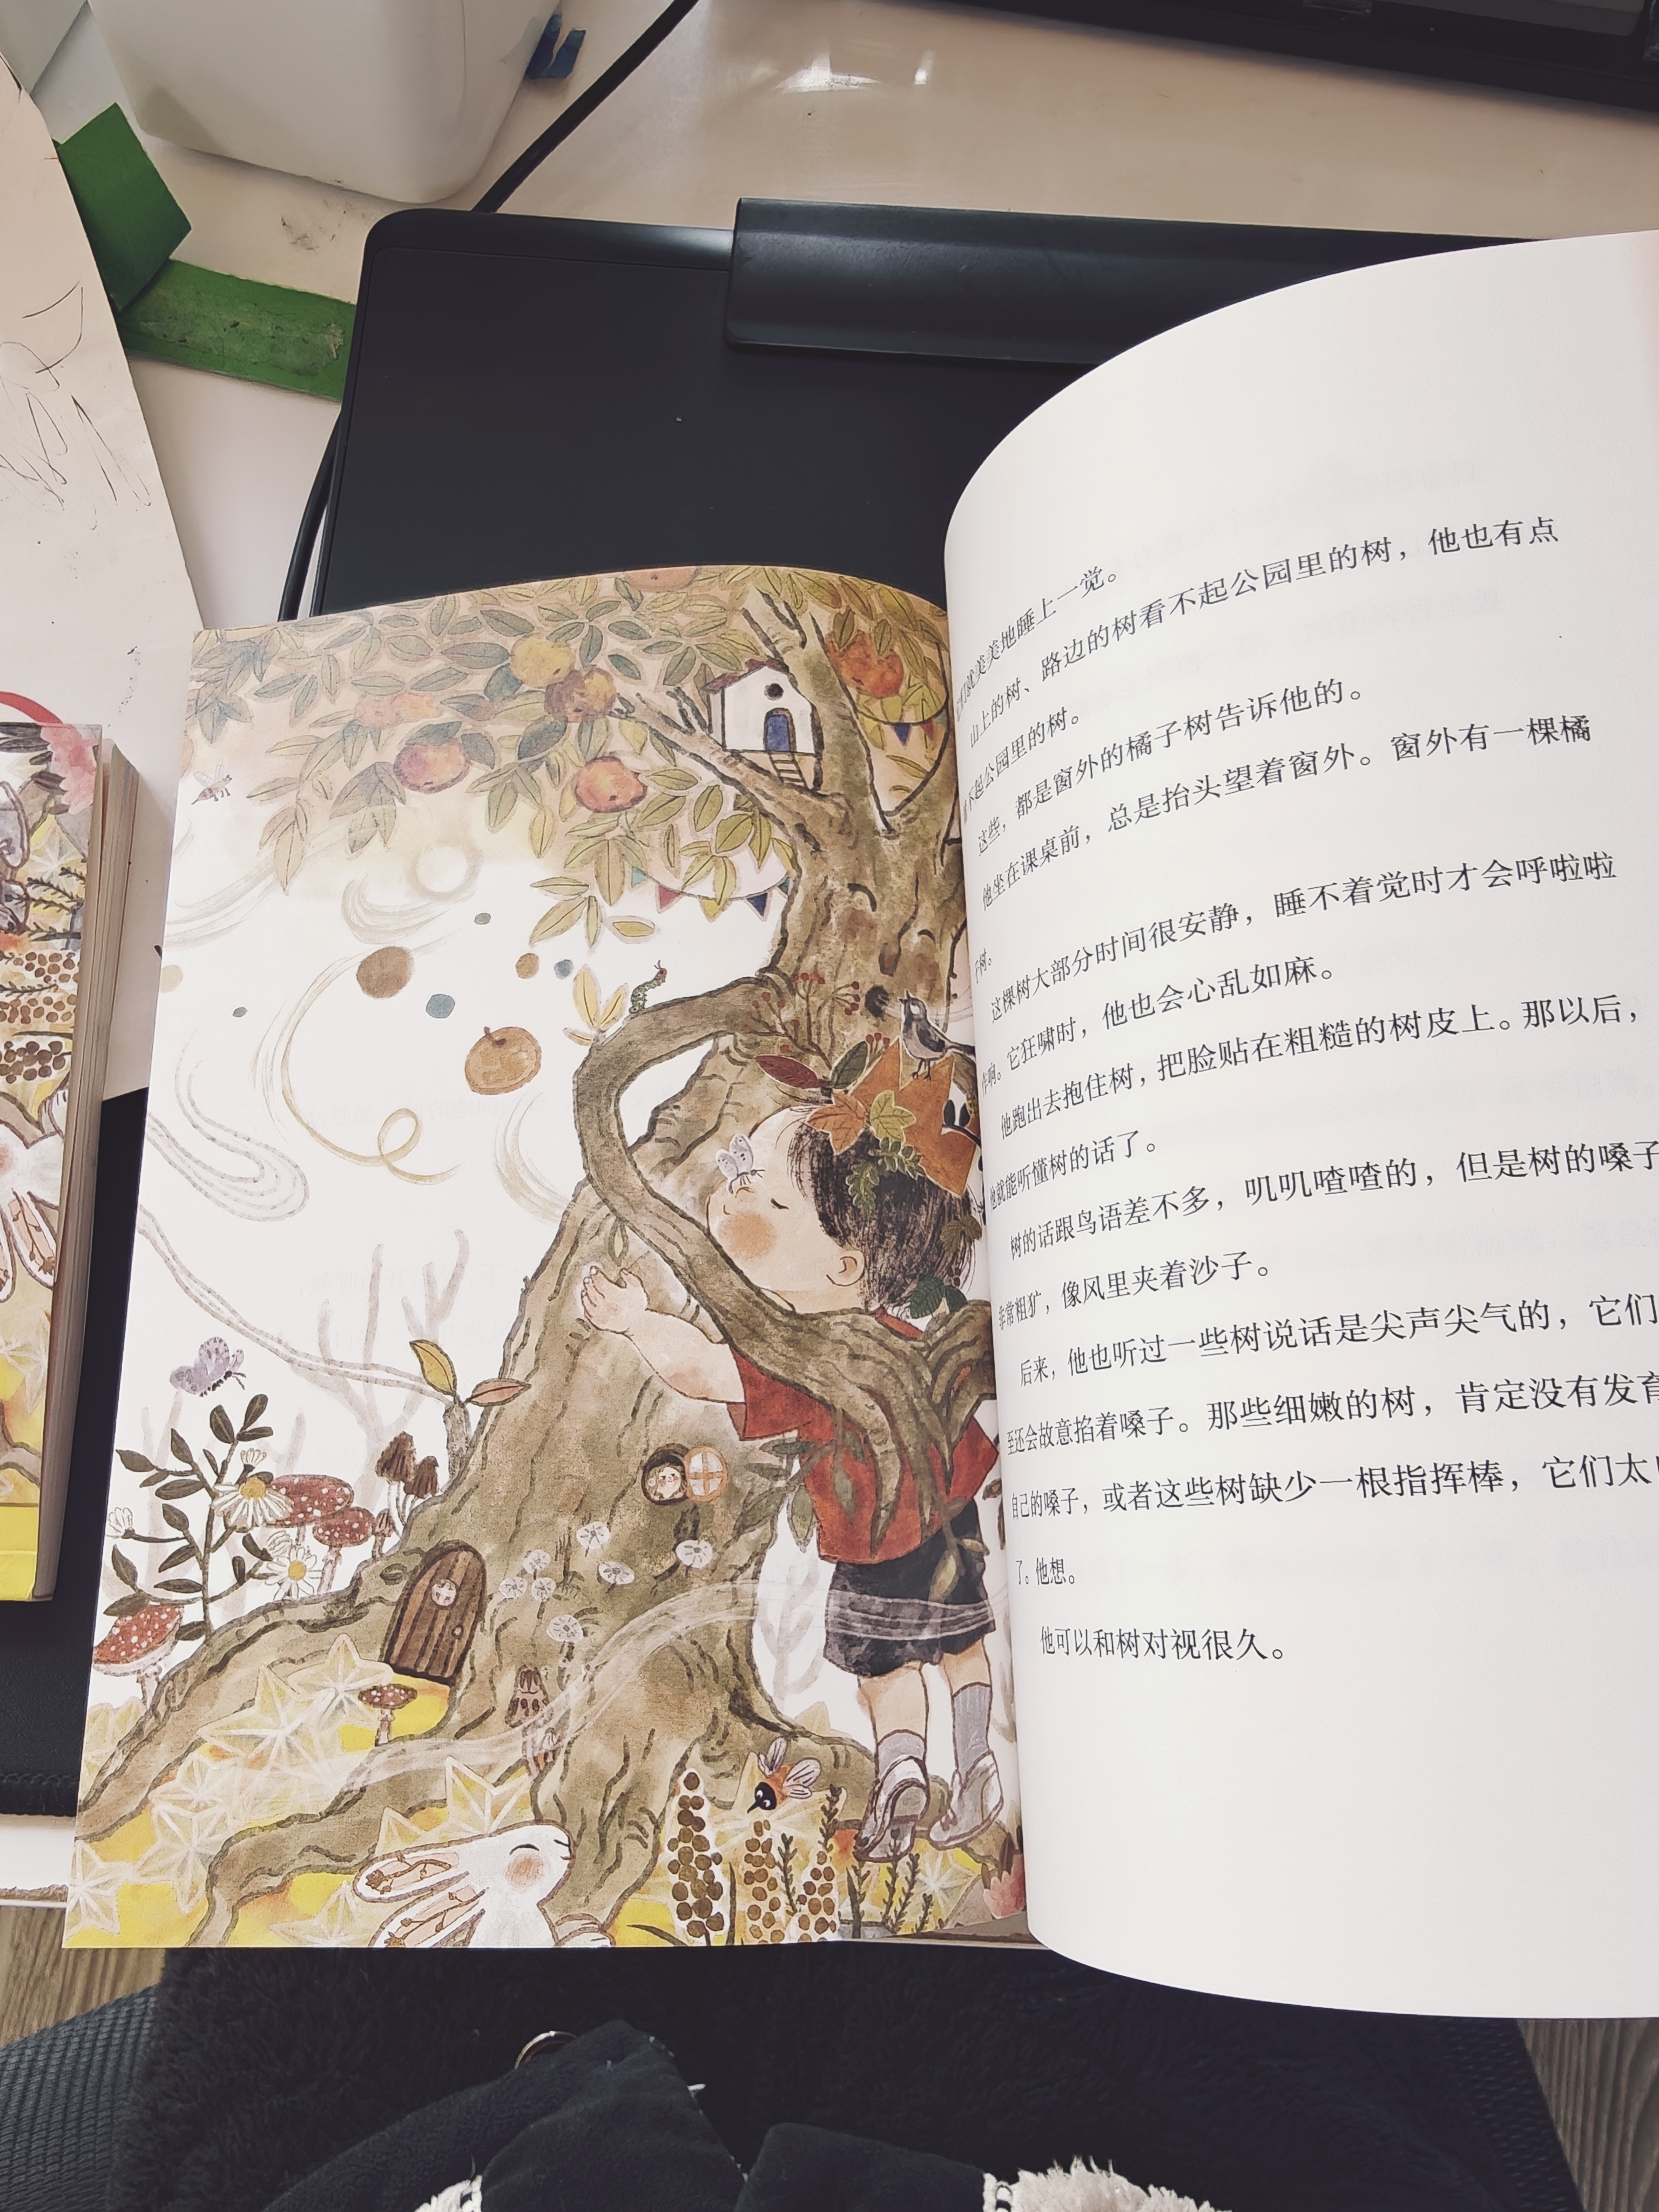 就美美地睡上一觉。
山上的树、路边的树看不起公园里的树，他也有点
不起公园里的树。
这些，都是窗外的橘子树告诉他的。
他坐在课桌前，总是抬头望着窗外。窗外有一棵橘
子树。
这棵树大部分时间很安静，睡不着觉时才会呼啦啦
作响。它狂啸时，他也会心乱如麻。
他跑出去抱住树，把脸贴在粗糙的树皮上。那以后，
他就能听懂树的话了。
树的话跟鸟语差不多，叽叽喳喳的，但是树的嗓子
非常粗犷，像风里夹着沙子。
后来，他也听过一些树说话是尖声尖气的，它们
至还会故意掐着嗓子。那些细嫩的树，肯定没有发育
自己的嗓子，或者这些树缺少一根指挥棒，它们太
了。他想。
他可以和树对视很久。